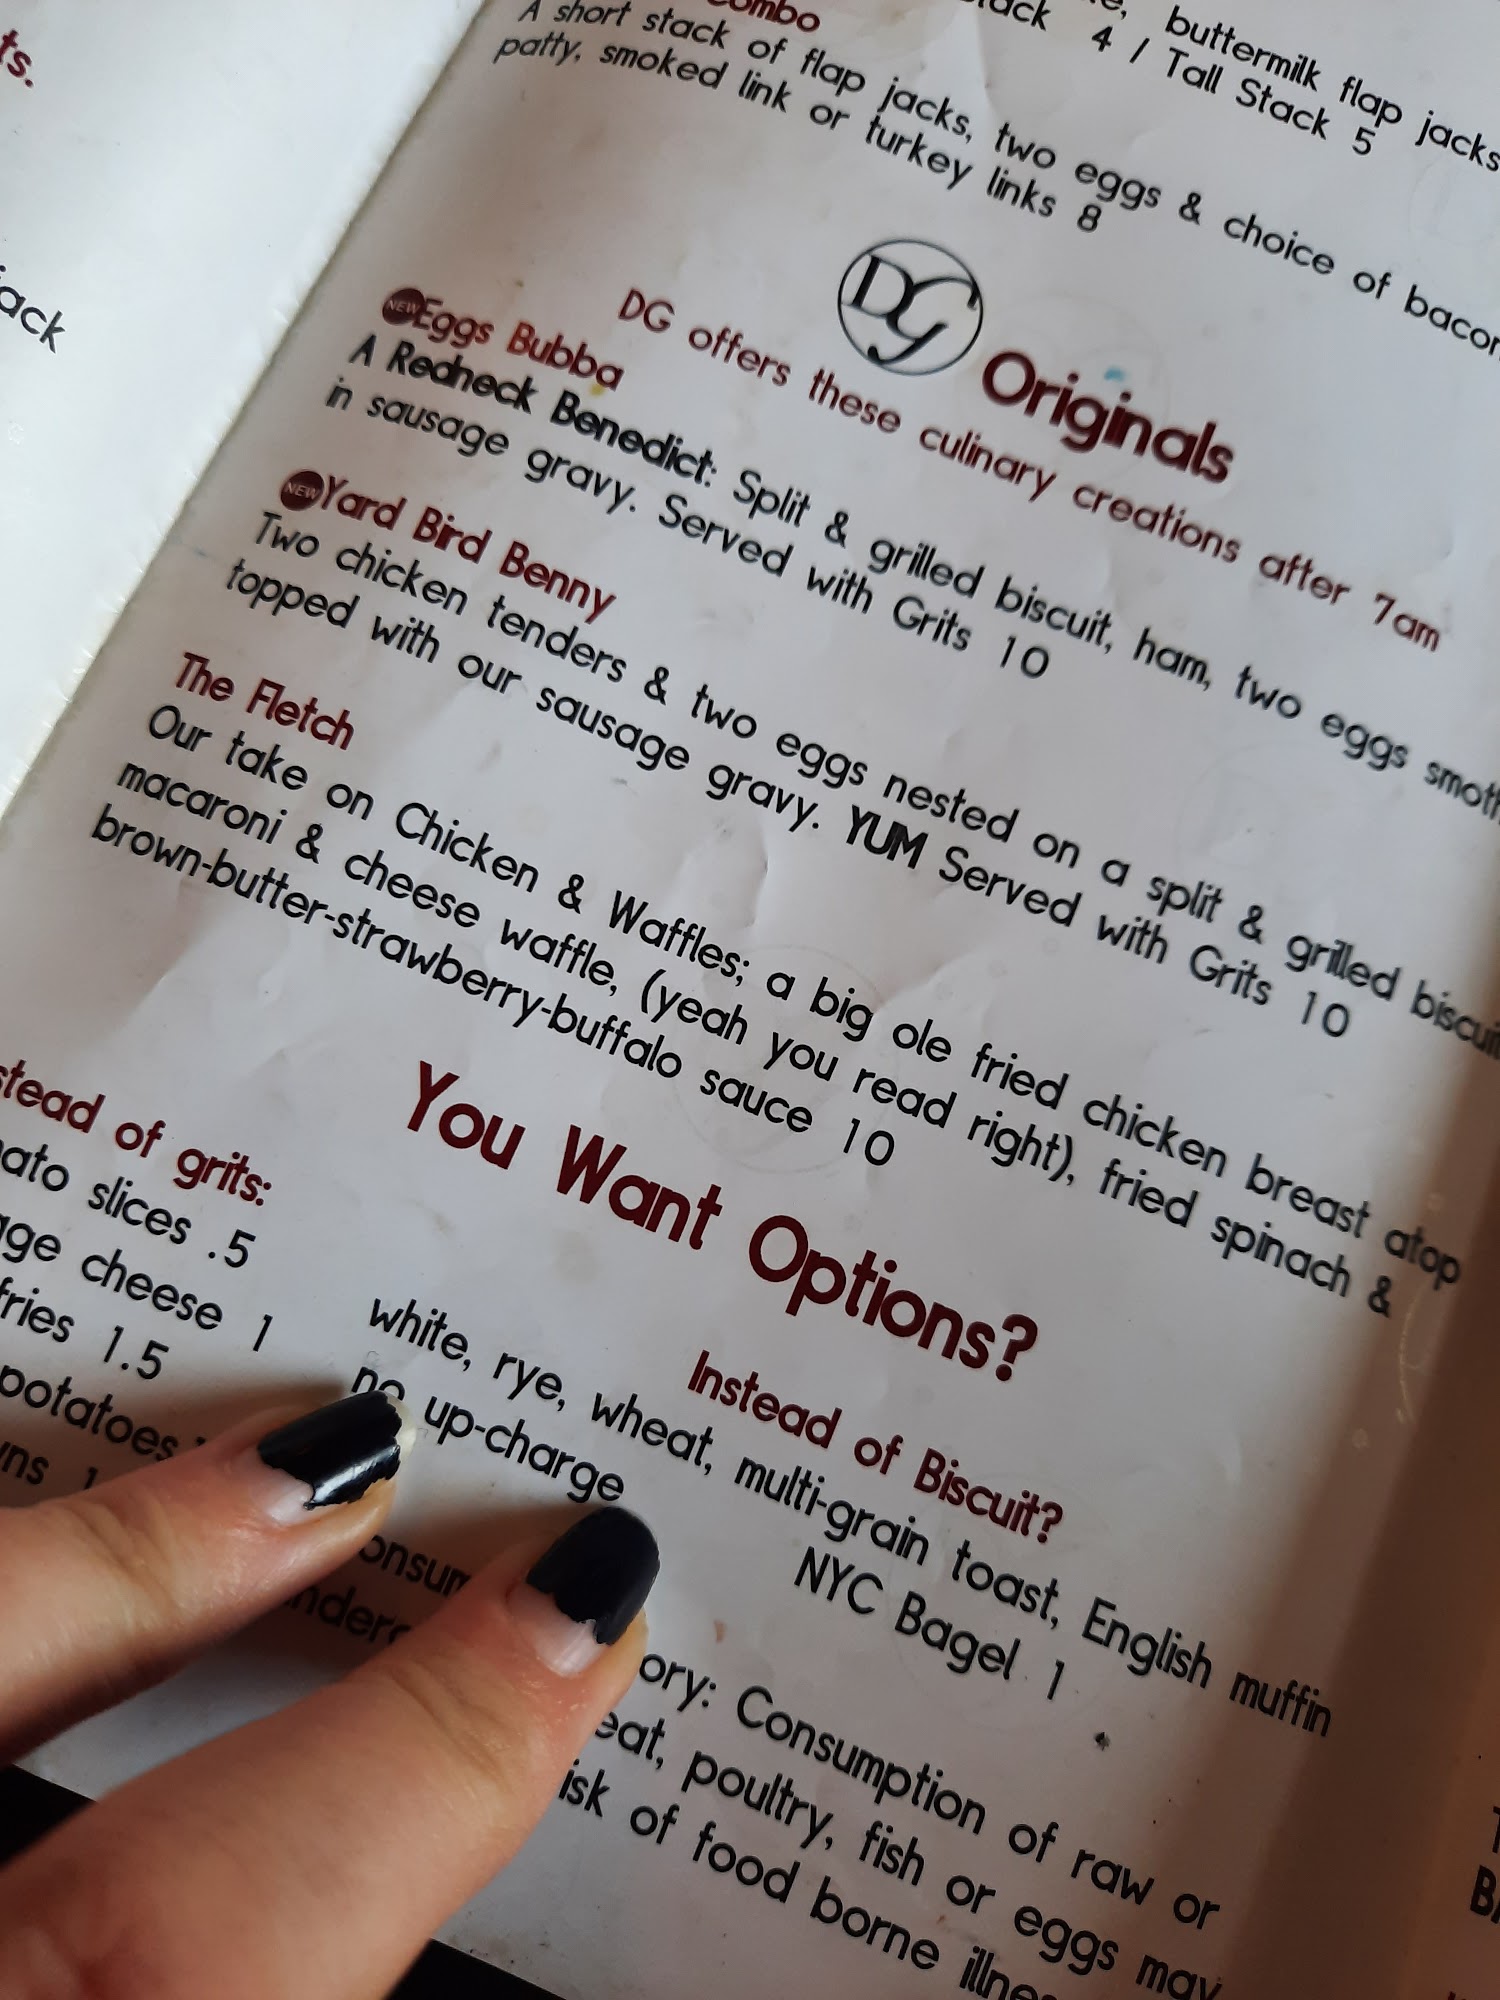 ts.
ack
Combo
buttermilk flap jacks
4 / Tall Stack 5
A short stack of flap jacks, two eggs & choice of bacon
patty, smoked link or turkey links 8
DG Originals
DG offers these culinary creations after 7am
NEW Eggs Bubba
A Redneck Benedict: Split & grilled biscuit, ham, two eggs smoth
in sausage gravy. Served with Grits 10
NEW Yard Bird Benny
Two chicken tenders & two eggs nested on a split & grilled biscuit
topped with our sausage gravy. YUM Served with Grits 10
The Fletch
Our take on Chicken & Waffles; a big ole fried chicken breast atop
macaroni & cheese waffle, (yeah you read right), fried spinach &
brown-butter-strawberry-buffalo sauce 10
You Want Options?
stead of grits:
ato slices .5
age cheese 1
fries 1.5
potatoes
Instead of Biscuit?
white, rye, wheat, multi-grain toast, English muffin
no up-charge
NYC Bagel 1
ory: Consumption of raw or
eat, poultry, fish or eggs may
isk of food borne illne